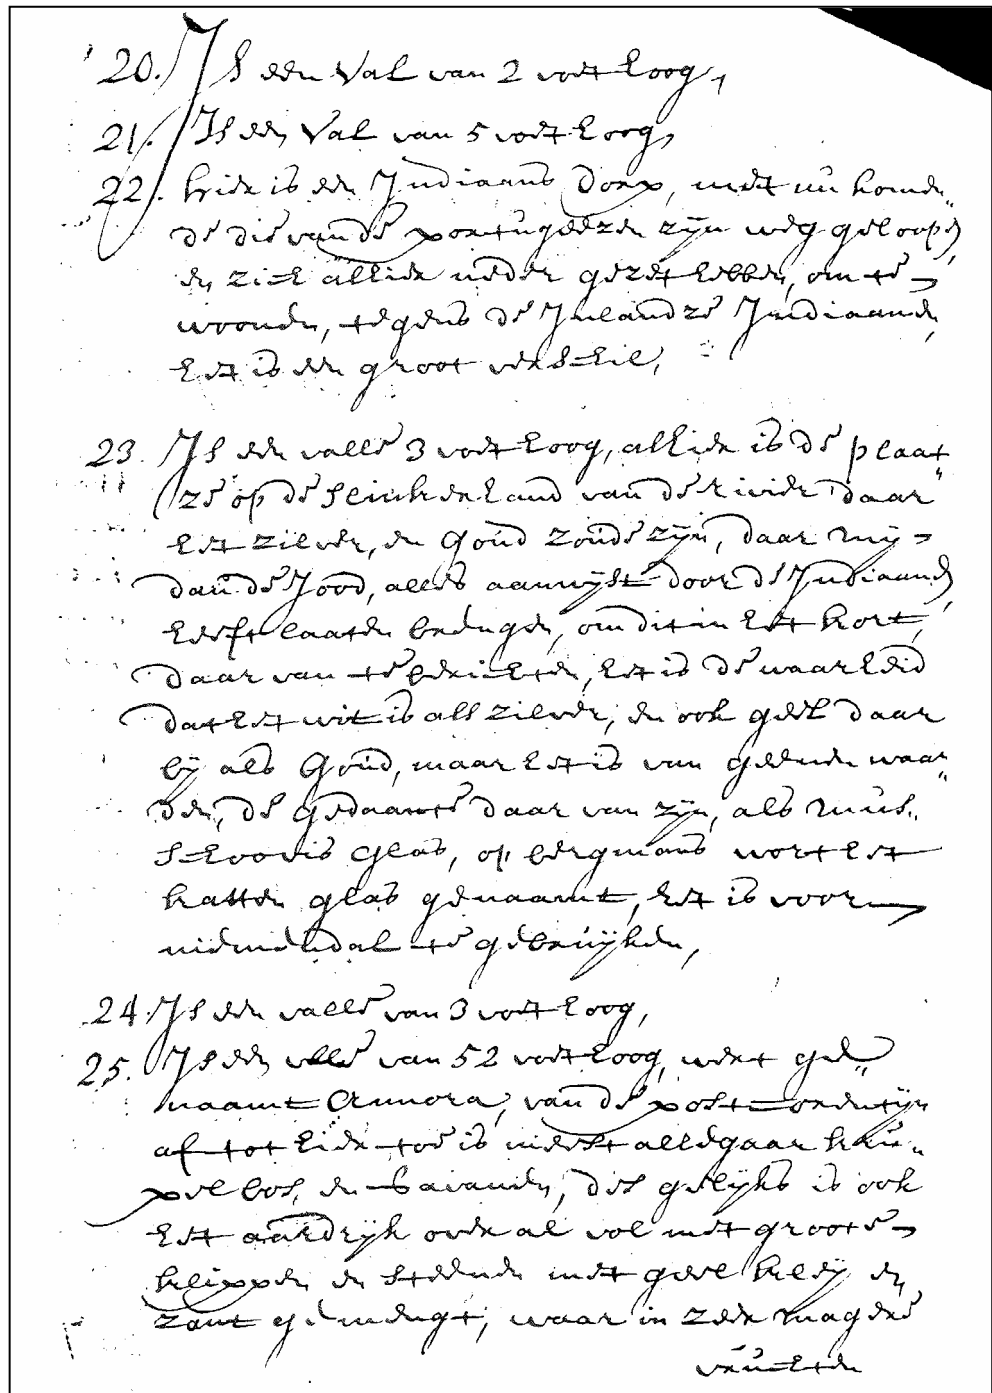 20. Is een Val van 2 voet hoog,
21. Is een Val van 5 voet hoog,
22. hier is een Indiaans dorp, met nu komen„
de die van de portugeezen zijn weg geloopen
en zich alhier neder gezet hebben, om te
woonen, tegens de Inlandze Indiaanen
het is een groot verschil,
23. Is een valle 3 voet hoog, alhier is de plaat„
ze op de slinker hand van de rivier daar
het zilver, en Goud zoude zijn, daar mij
dan de Jood, alles aanwijst door de Indiaanen
heeft laaten brengen, om dit in het kort,
daar van te berichten, het is de waarheid
dat het wit is als zilver, en ook geel daar
bij als Goud, maar het is van geenen waar„
den, de gedaante daar van zijn, als mus„
schovis Glas, op bergmans wort het
katten glas genaamt, het is voor
niemendal te gebruijken,
24. Is een valle van 3 voet hoog,
25. Is een valle van 52 voet hoog, wert ge„
naamt Annora, van de post orderijn
af tot hier toe is meest allegaar kreu„
pel bos, en Savanen, des gelijks is ook
het aardrijk over al vol met groote
klippen en steenen met geel kleij en
zant gemengt, waar in zeer magere
vruchten